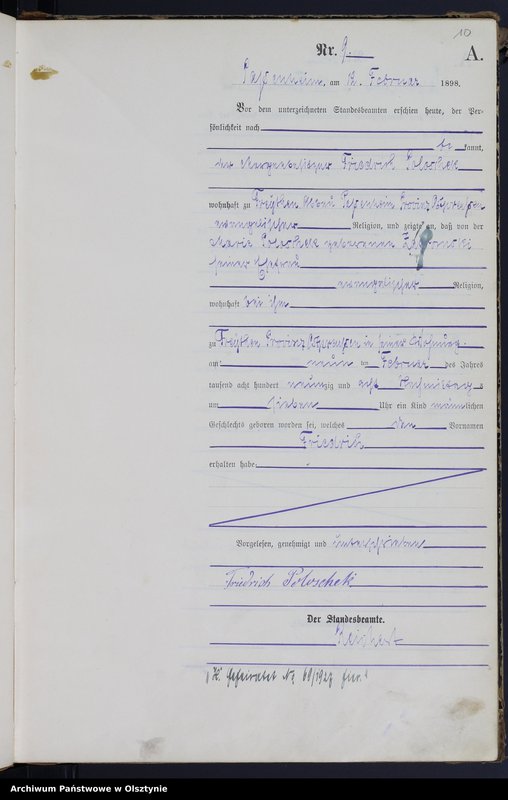 10
Nr. 9.
A.
am 12. Februar 1898.
Vor dem unterzeichneten Standesbeamten erschien heute, der Per-
sönlichkeit nach
be kannt,
der Friedrich
wohnhaft zu Abbau Provinz Ostpreußen
evangelischer Religion, und zeigte an, daß von der
Maria geborenen
seiner Ehefrau
evangelischer Religion,
wohnhaft bei ihm
zu Provinz Ostpreußen in seiner Wohnung
am neun ten Februar des Jahres
tausend acht hundert neunzig und acht Nachmittags
um sieben Uhr ein Kind männlichen
Geschlechts geboren worden sei, welches den Vornamen
Friedrich
erhalten habe.
Vorgelesen, genehmigt und unterschrieben
Friedrich Poloschek
Der Standesbeamte.
Reichert
Geheiratet Nr. 69/1927 hier.
Archiwum Państwowe w Olsztynie